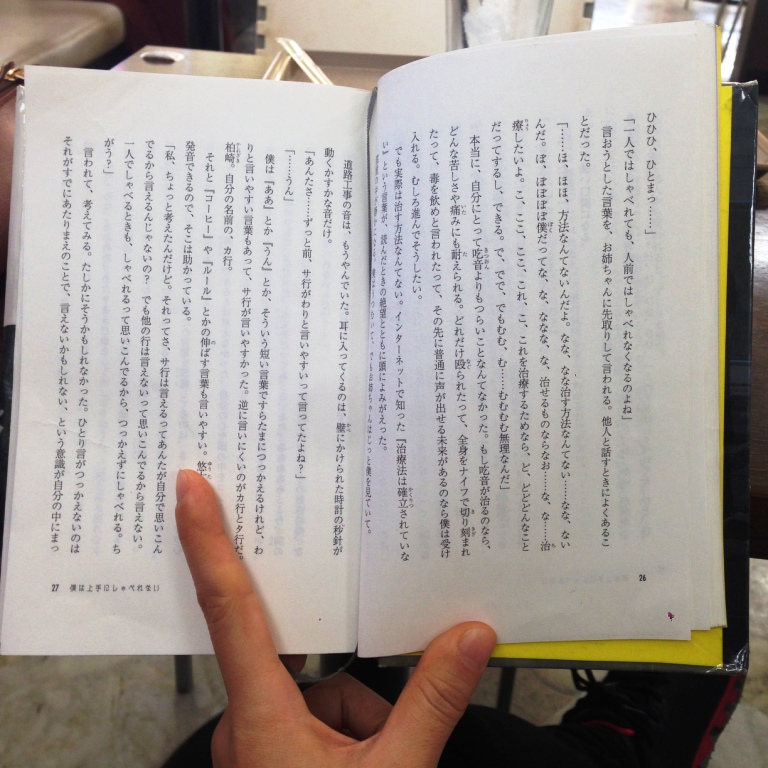 ひひひ、ひとまっ……」
「一人ではしゃべれても、人前ではしゃべれなくなるのよね」
言おうとした言葉を、お姉ちゃんに先取りして言われる。他人と話すときによくあるこ
とだった。
「……ほ、ほほ、方法なんてないんだよ。なな、なな治す方法なんてない……なな、ない
んだ。ぼ、ぼぼぼぼ僕だってな、な、ななな、な、治せるものならなお……な、な……治
療したいよ。こ、ここ、ここ、これ、こ、これを治療するためなら、ど、どどどんなこと
だってするし、できる。で、でで、でもむむ、む……むむむむ無理なんだ」
本当に、自分にとって吃音よりもつらいことなんてなかった。もし吃音が治るのなら、
どんな苦しさや痛みにも耐えられる。どれだけ殴られたって、全身をナイフで切り刻まれ
たって、毒を飲めと言われたって、その先に普通に声が出せる未来があるのなら僕は受け
入れる。むしろ進んでそうしたい。
でも実際は治す方法なんてない。インターネットで知った『治療法は確立されていな
い』という言葉が、読んだときの絶望とともに頭によみがえった。
はじっと僕を見ていて。
26
道路工事の音は、もうやんでいた。耳に入ってくるのは、壁にかけられた時計の秒針が
動くかすかな音だけ。
「あんたさ……ずっと前、サ行がわりと言いやすいって言ってたよね？」
「……うん」
僕は『ああ』とか『うん』とか、そういう短い言葉ですらたまにつっかえるけれど、わ
りと言いやすい言葉もあって、サ行が言いやすかった。逆に言いにくいのがカ行とタ行だ。
柏崎。自分の名前の、カ行。
それと『コーヒー』や『ルール』とかの伸ばす言葉も言いやすい。悠
発音できるので、そこは助かっている。
「私、ちょっと考えたんだけど。それってさ、サ行は言えるってあんたが自分で思いこん
でるから言えるんじゃないの？　でも他の行は言えないって思いこんでるから言えない。
一人でしゃべるときも、しゃべれるって思いこんでるから、つっかえずにしゃべれる。ち
がう？」
言われて、考えてみる。たしかにそうかもしれなかった。ひとり言がつっかえないのは
それがすでにあたりまえのことで、言えないかもしれない、という意識が自分の中にまっ
27 僕は上手にしゃべれない